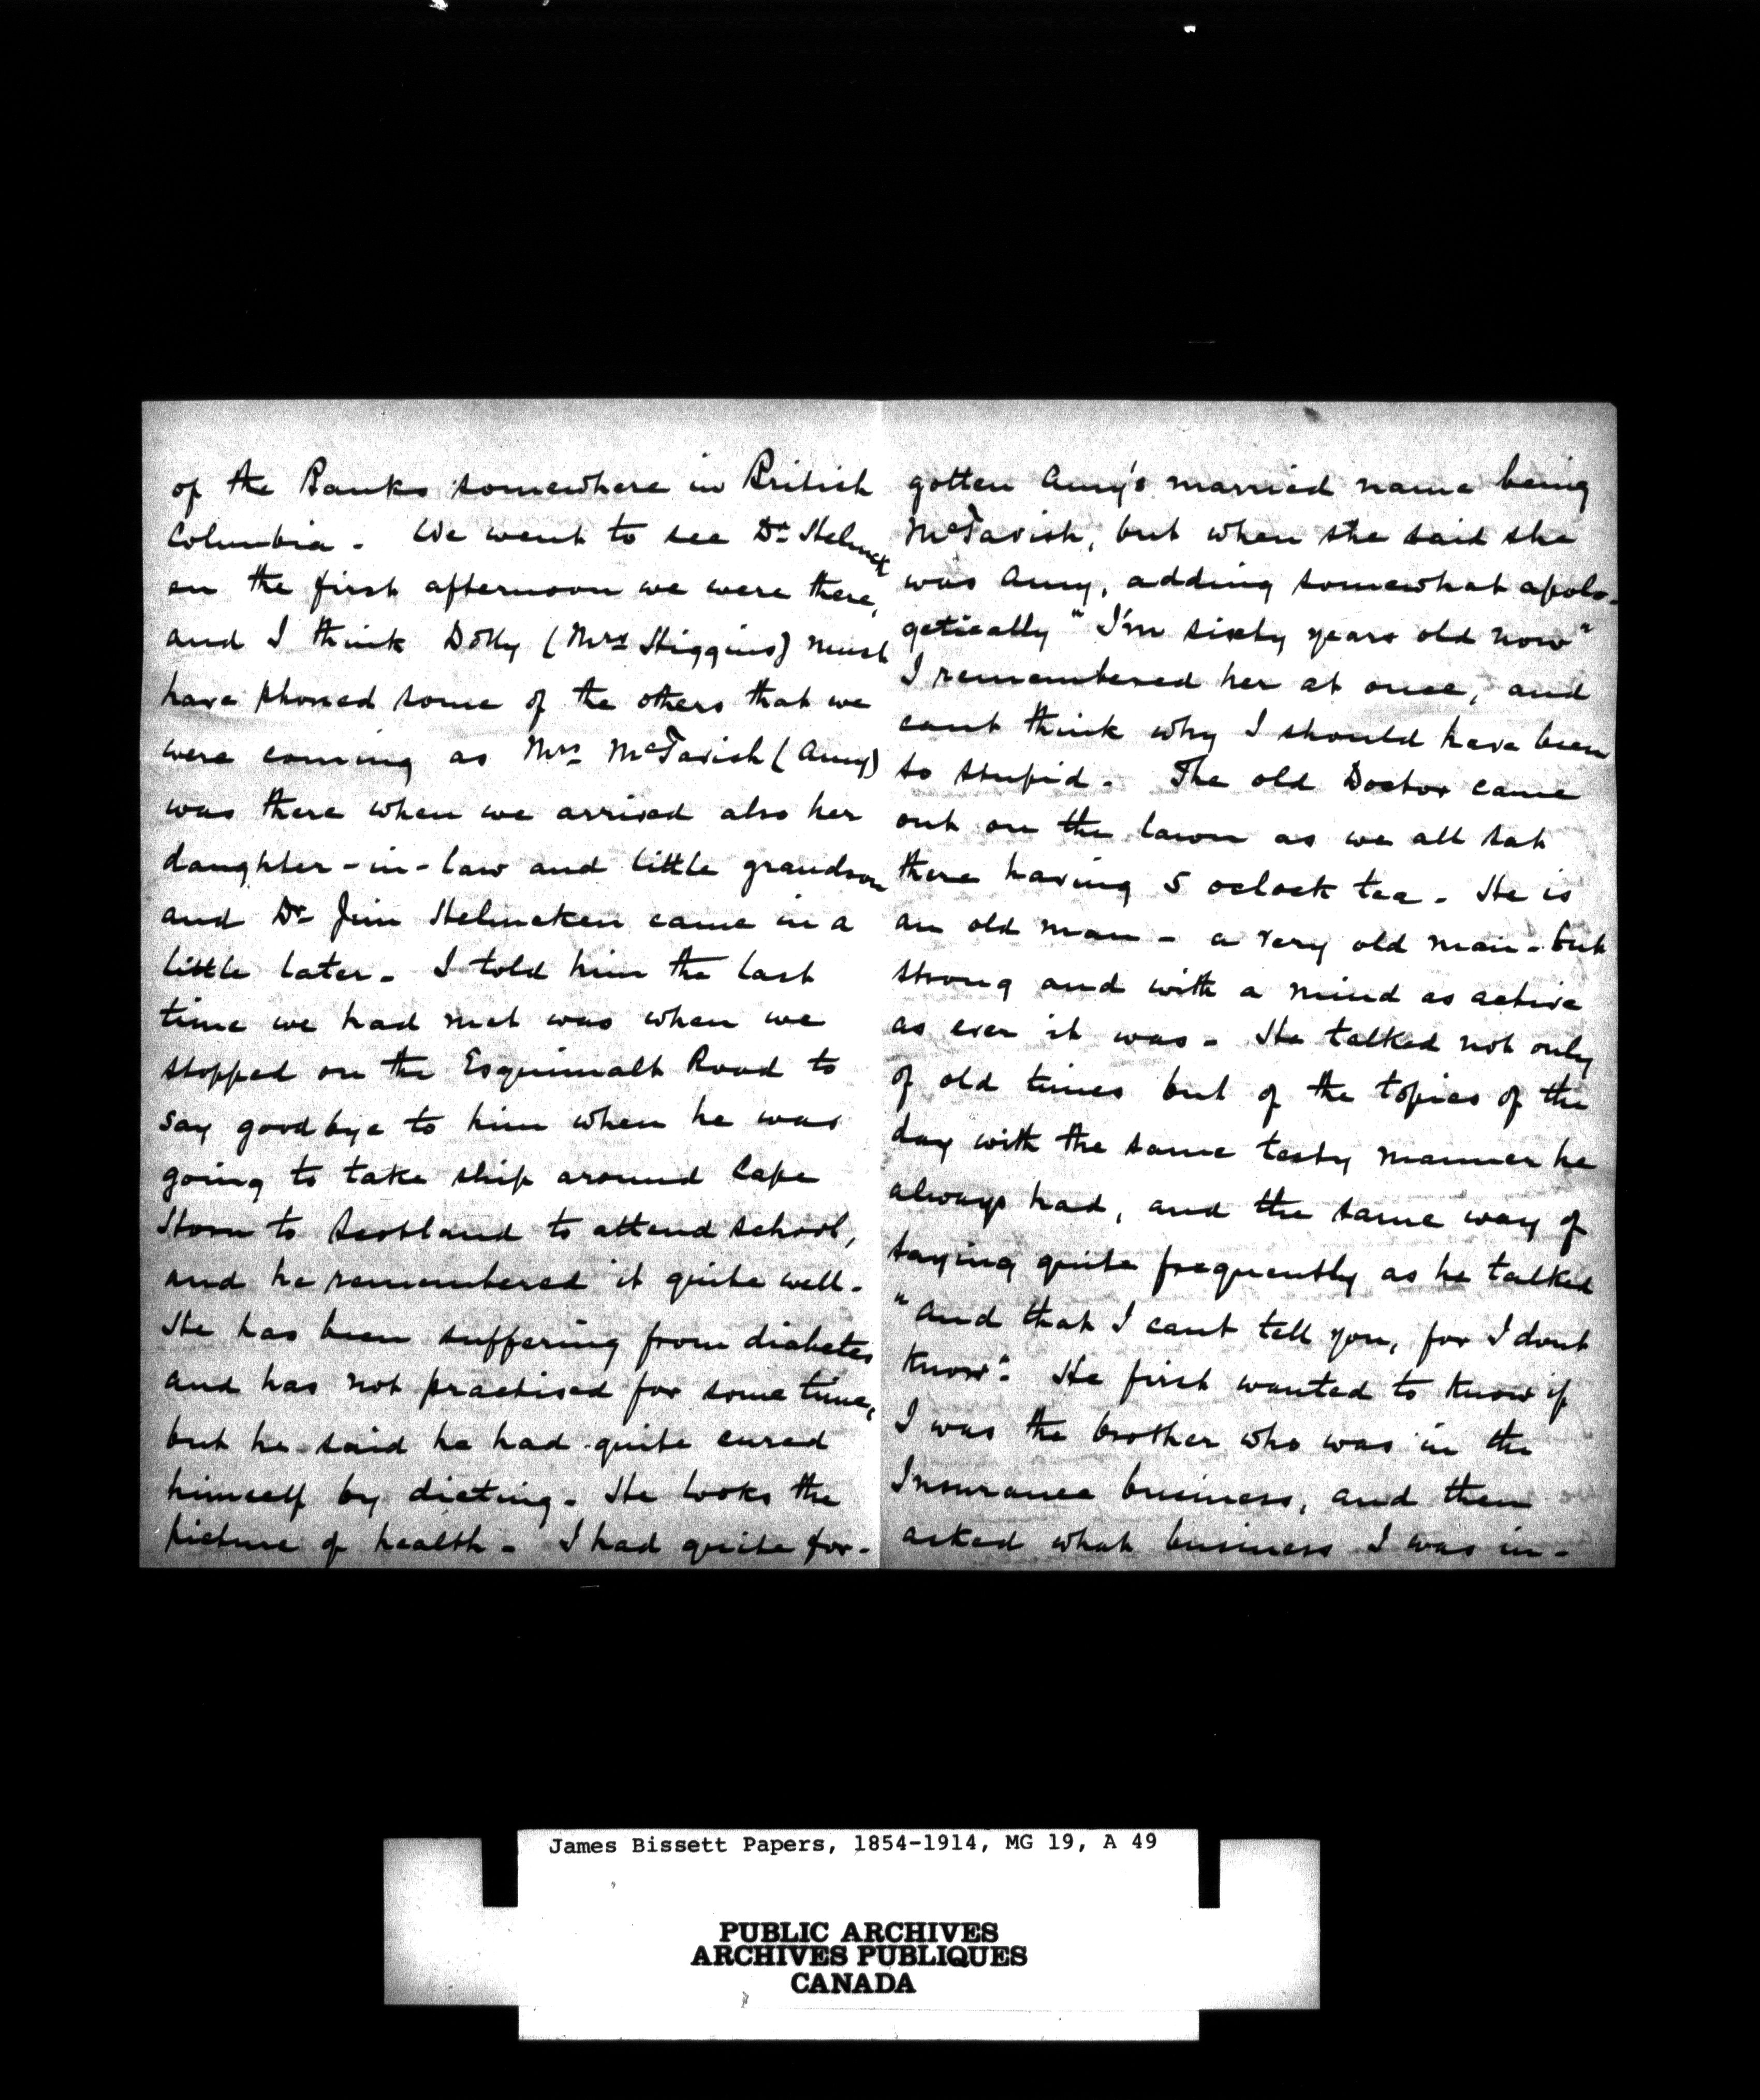 of the Banks somewhere in British
Columbia. We went to see Dr. Helmcken
on the first afternoon we were there,
and I think Dolly (Mrs Higgins) must
have phoned some of the others that we
were coming as Mrs. McTavish (Amy)
was there when we arrived also her
daughter-in-law and little grandson
and Dr. Jim Helmcken came in a
little later. I told him the last
time we had met was when we
stopped on the Esquimalt Road to
say goodbye to him when he was
going to take ship around Cape
Horn to Scotland to attend school,
and he remembered it quite well.
He has been suffering from diabetes
and has not practised for some time,
but he said he had quite cured
himself by dieting. He looks the
picture of health. I had quite for-
gotten Amy's married name being
McTavish, but when she said she
was Amy, adding somewhat apolo-
getically "I'm sixty years old now"
I remembered her at once, and
cant think why I should have been
so stupid. The old Doctor came
out on the lawn as we all sat
there having 5 oclock tea. He is
an old man - a very old man - but
strong and with a mind as active
as ever it was. He talked not only
of old times but of the topics of the
day with the same testy manner he
always had, and the same way of
saying quite frequently as he talked
"And that I cant tell you, for I dont
know". He first wanted to know if
I was the brother who was in the
Insurance business, and then
asked what business I was in.
James Bissett Papers, 1854-1914, MG 19, A 49
PUBLIC ARCHIVES
ARCHIVES PUBLIQUES
CANADA